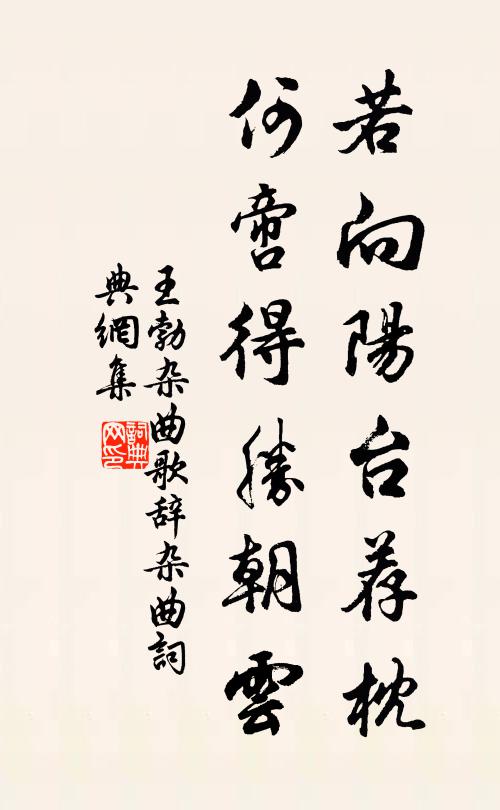 若向陽台荐枕
何啻得勝朝雲
王勃杂曲歌辞杂曲詞
典網集
詞典
网印